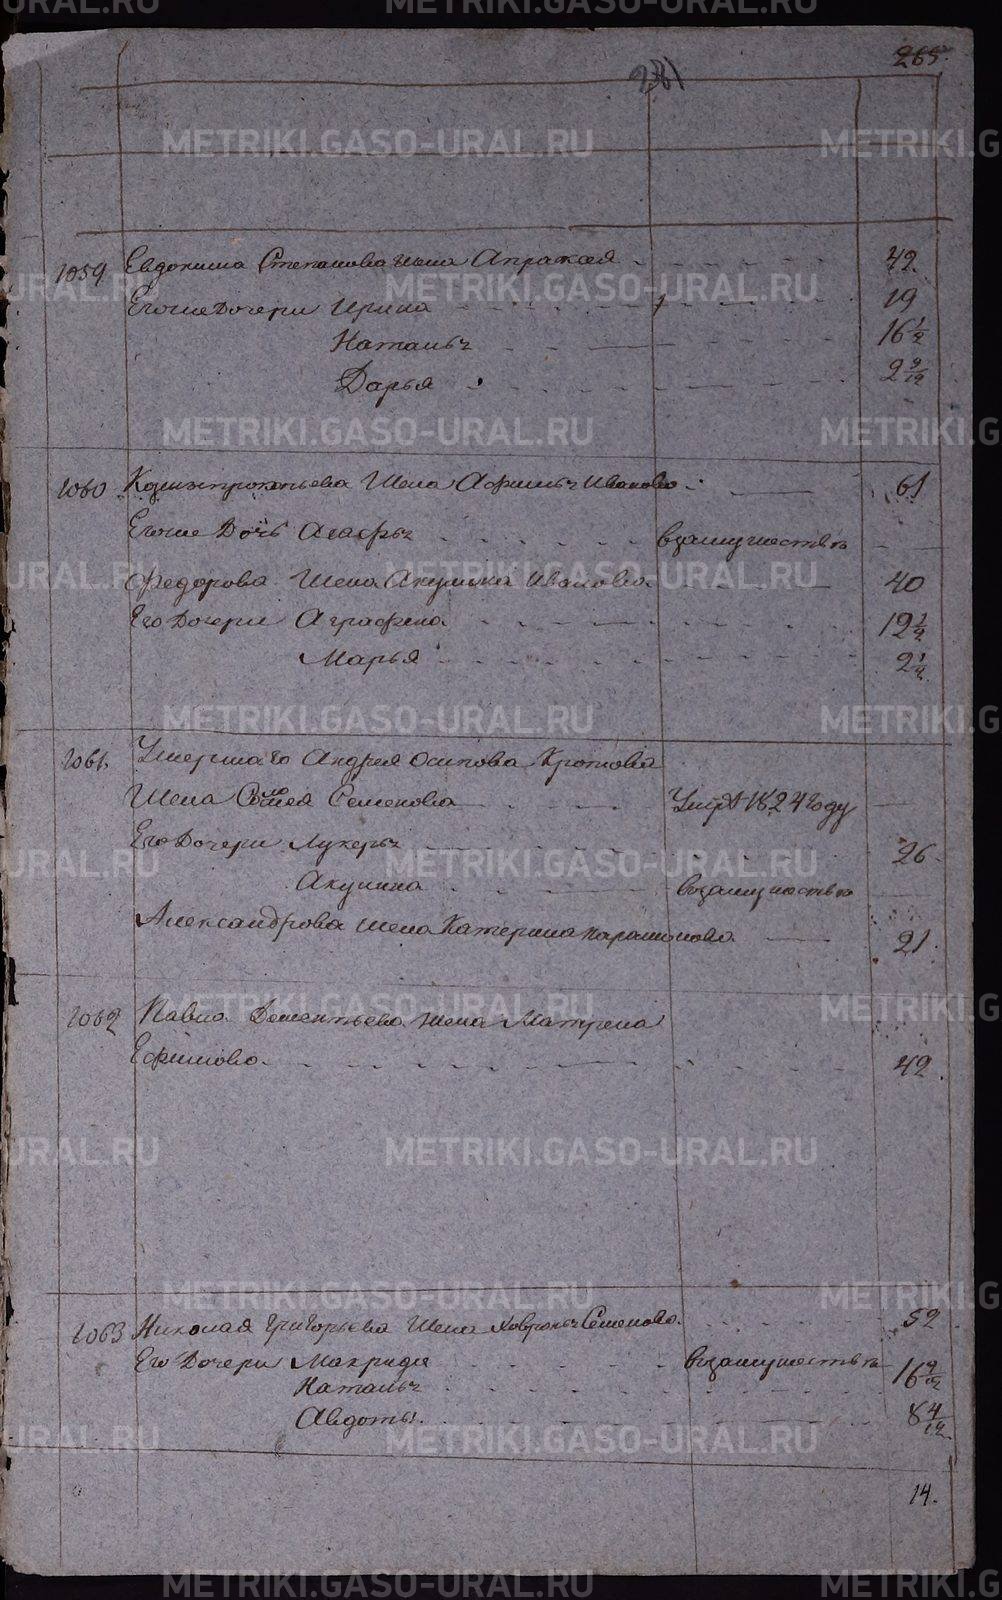 265.
261
1059 Евдокима Степанова жена Апраксея 42.
Егоже Дочери Ирина 19
Наталья 16 1/2
Дарья 2 9/12
1060 Козмы прокопьева Жена Афимья Иванова 61
Егоже Дочь Агафья взамужествѣ
Федорова Жена Акулина Иванова 40
Его Дочери Аграфена 12 1/2
Марья 2 1/2
1061. Умершаго Андрея Осипова Кропова
Жена Софья Семенова Умрѣ 1824 году
Его Дочери Лукерья 26.
Акулина взамужествѣ
Александрова жена Катерина парамонова 21.
1062 Павла Дементьева жена Матрена
Ефимова 42.
1063 Николая Григорьева Жена Хавронья Семенова. 52
Его Дочери Макрида взамужествѣ
Наталья 16 9/12
Авдотья 8 4/12
14.
METRIKI.GASO-URAL.RU